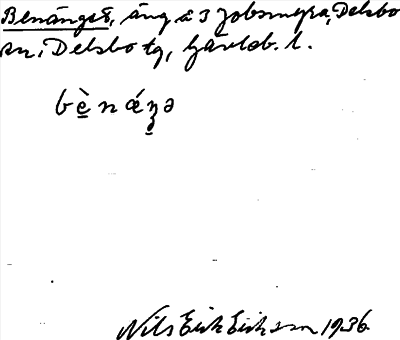 Benänget, äng å 3 Jobsmyra, Delsbo
sn, Delsbo tg, Gävleb. l.
bènǽŋə
Nils Erik Eriksson 1936